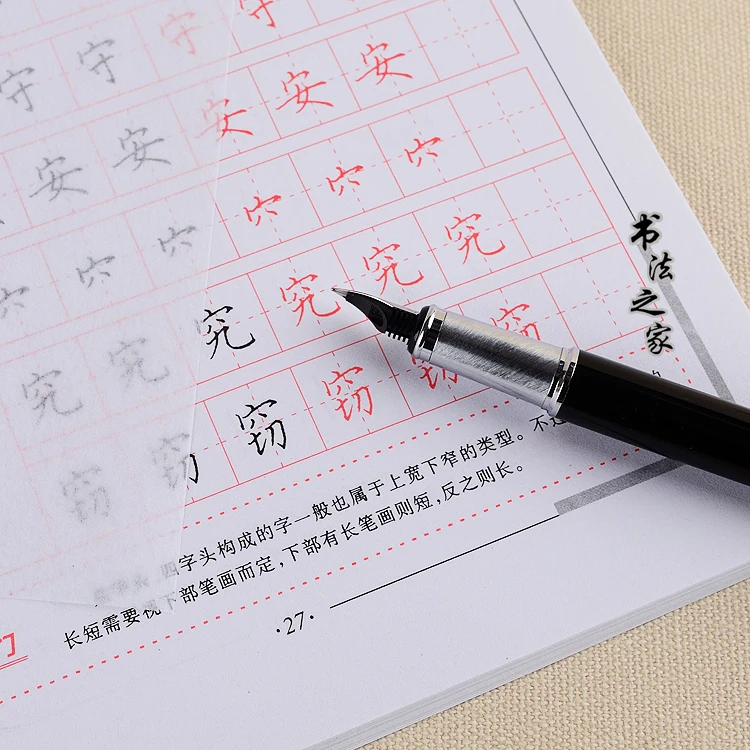 守守守守
安安安安安
穴穴穴穴穴穴
究究究究究究
窃窃窃窃窃窃
四字头构成的字一般也属于上宽下窄的类型。不
长短需要视下部笔画而定,下部有长笔画则短,反之则长。
·27·
书法之家